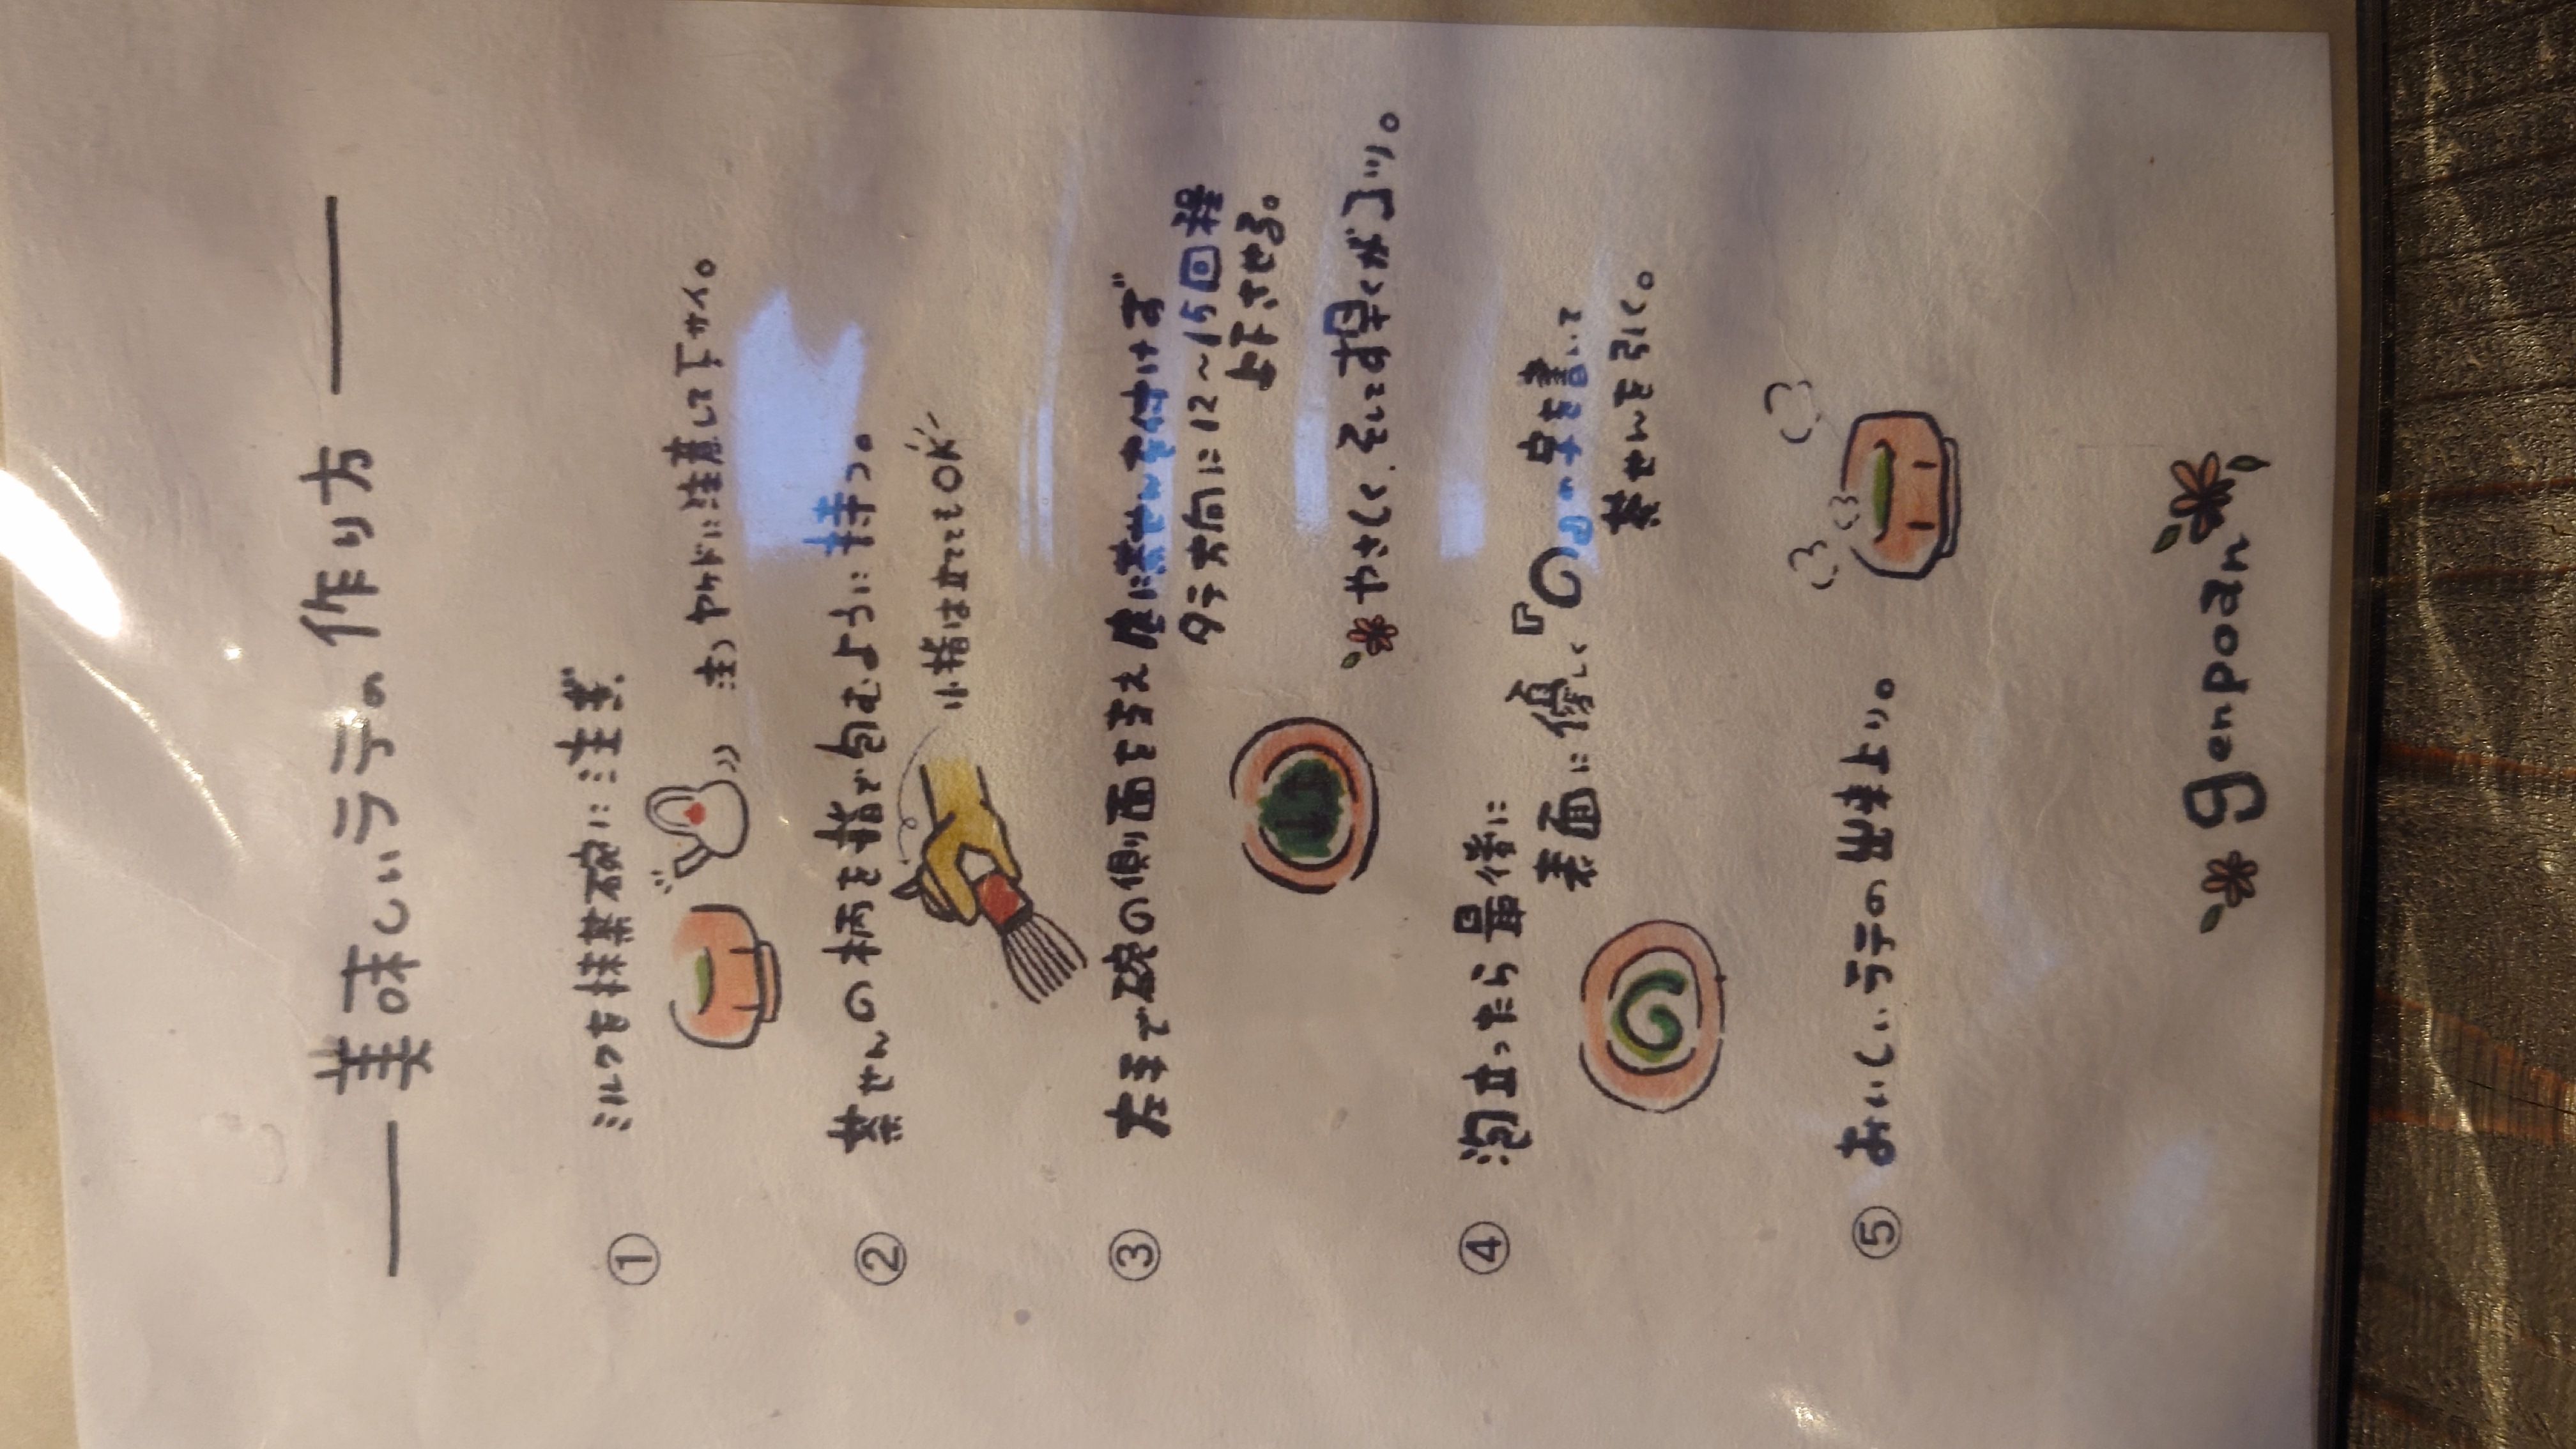 美味しいラテの作り方
① ミルクを抹茶碗に注ぎ、
注) ヤケドに注意して下サイ。
② 茶せんの柄を指で包むように持つ。
小指は立ててもOK
③ 左手で碗の側面を支え 底に茶せんを付けず
タテ方向に12〜15回程
上下させる。
やさしく、そして素早くがコツ。
④ 泡立ったら最後に
表面に優しく『の』の字を書いて
茶せんを引く。
⑤ おいしいラテの出来上り。
genpoan